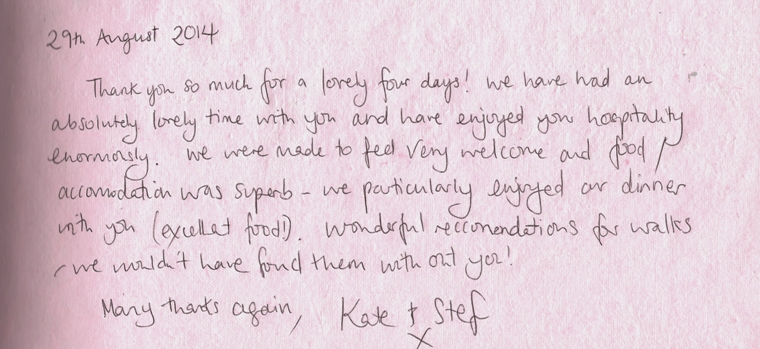 29th August 2014
Thank you so much for a lovely four days! We have had an
absolutely lovely time with you and have enjoyed you hospitality
enormously. We were made to feel very welcome and food /
accomodation was superb - we particularly enjoyed our dinner
with you (excellet food!). Wonderful reccomendations for walks
- we wouldn't have found them with out you!
Many thanks again, Kate + Stef
X